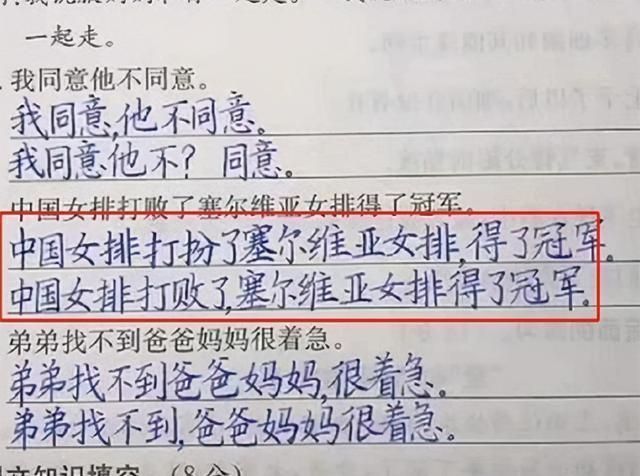 一起走。
我同意他不同意。
我同意,他不同意。
我同意他不? 同意。
中国女排打败了塞尔维亚女排得了冠军。
中国女排打扮了塞尔维亚女排,得了冠军.
中国女排打败了,塞尔维亚女排得了冠军.
弟弟找不到爸爸妈妈很着急。
弟弟找不到爸爸妈妈,很着急。
弟弟找不到,爸爸妈妈很着急。
文知识填空 (8分)